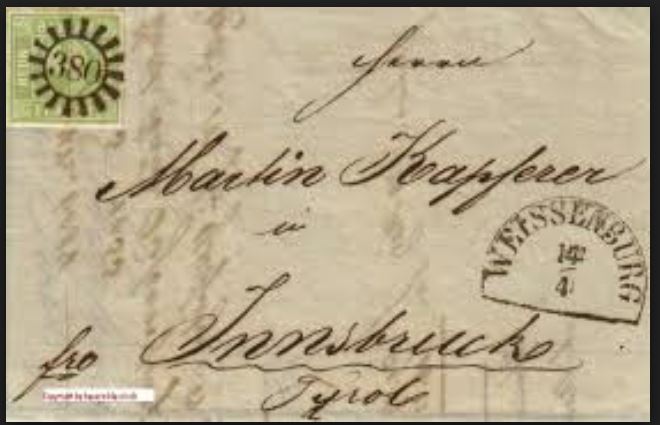 380
Herrn
Martin Kapferer
in
WEISSENBURG
14
4
Innsbruck
fro
Tyrol
Copyright by